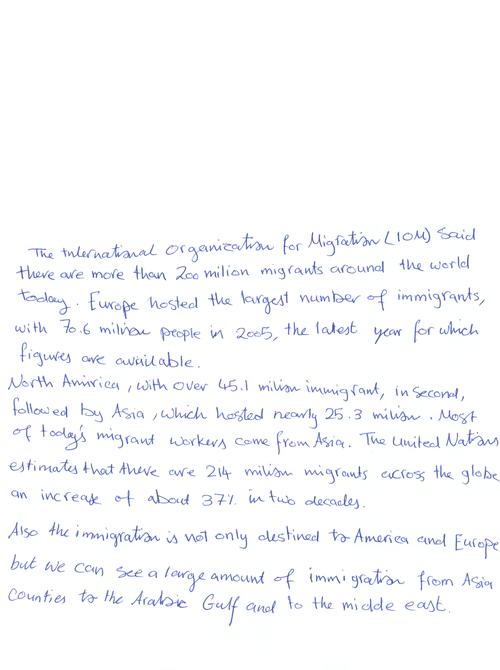 The International Organization for Migration (IOM) Said
there are more than 200 milion migrants around the world
today. Europe hosted the largest number of immigrants,
with 70.6 milion people in 2005, the latest year for which
figures are available.
North Amirica, with over 45.1 milion immigrant, in second,
followed by Asia, which hosted nearly 25.3 milion. Most
of today's migrant workers come from Asia. The United Nations
estimates that there are 214 milion migrants across the globe
an increase of about 37% in two decades.
Also the immigration is not only destined to America and Europe
but we can see a large amount of immigration from Asia
Counties to the Arabic Gulf and to the middle east.